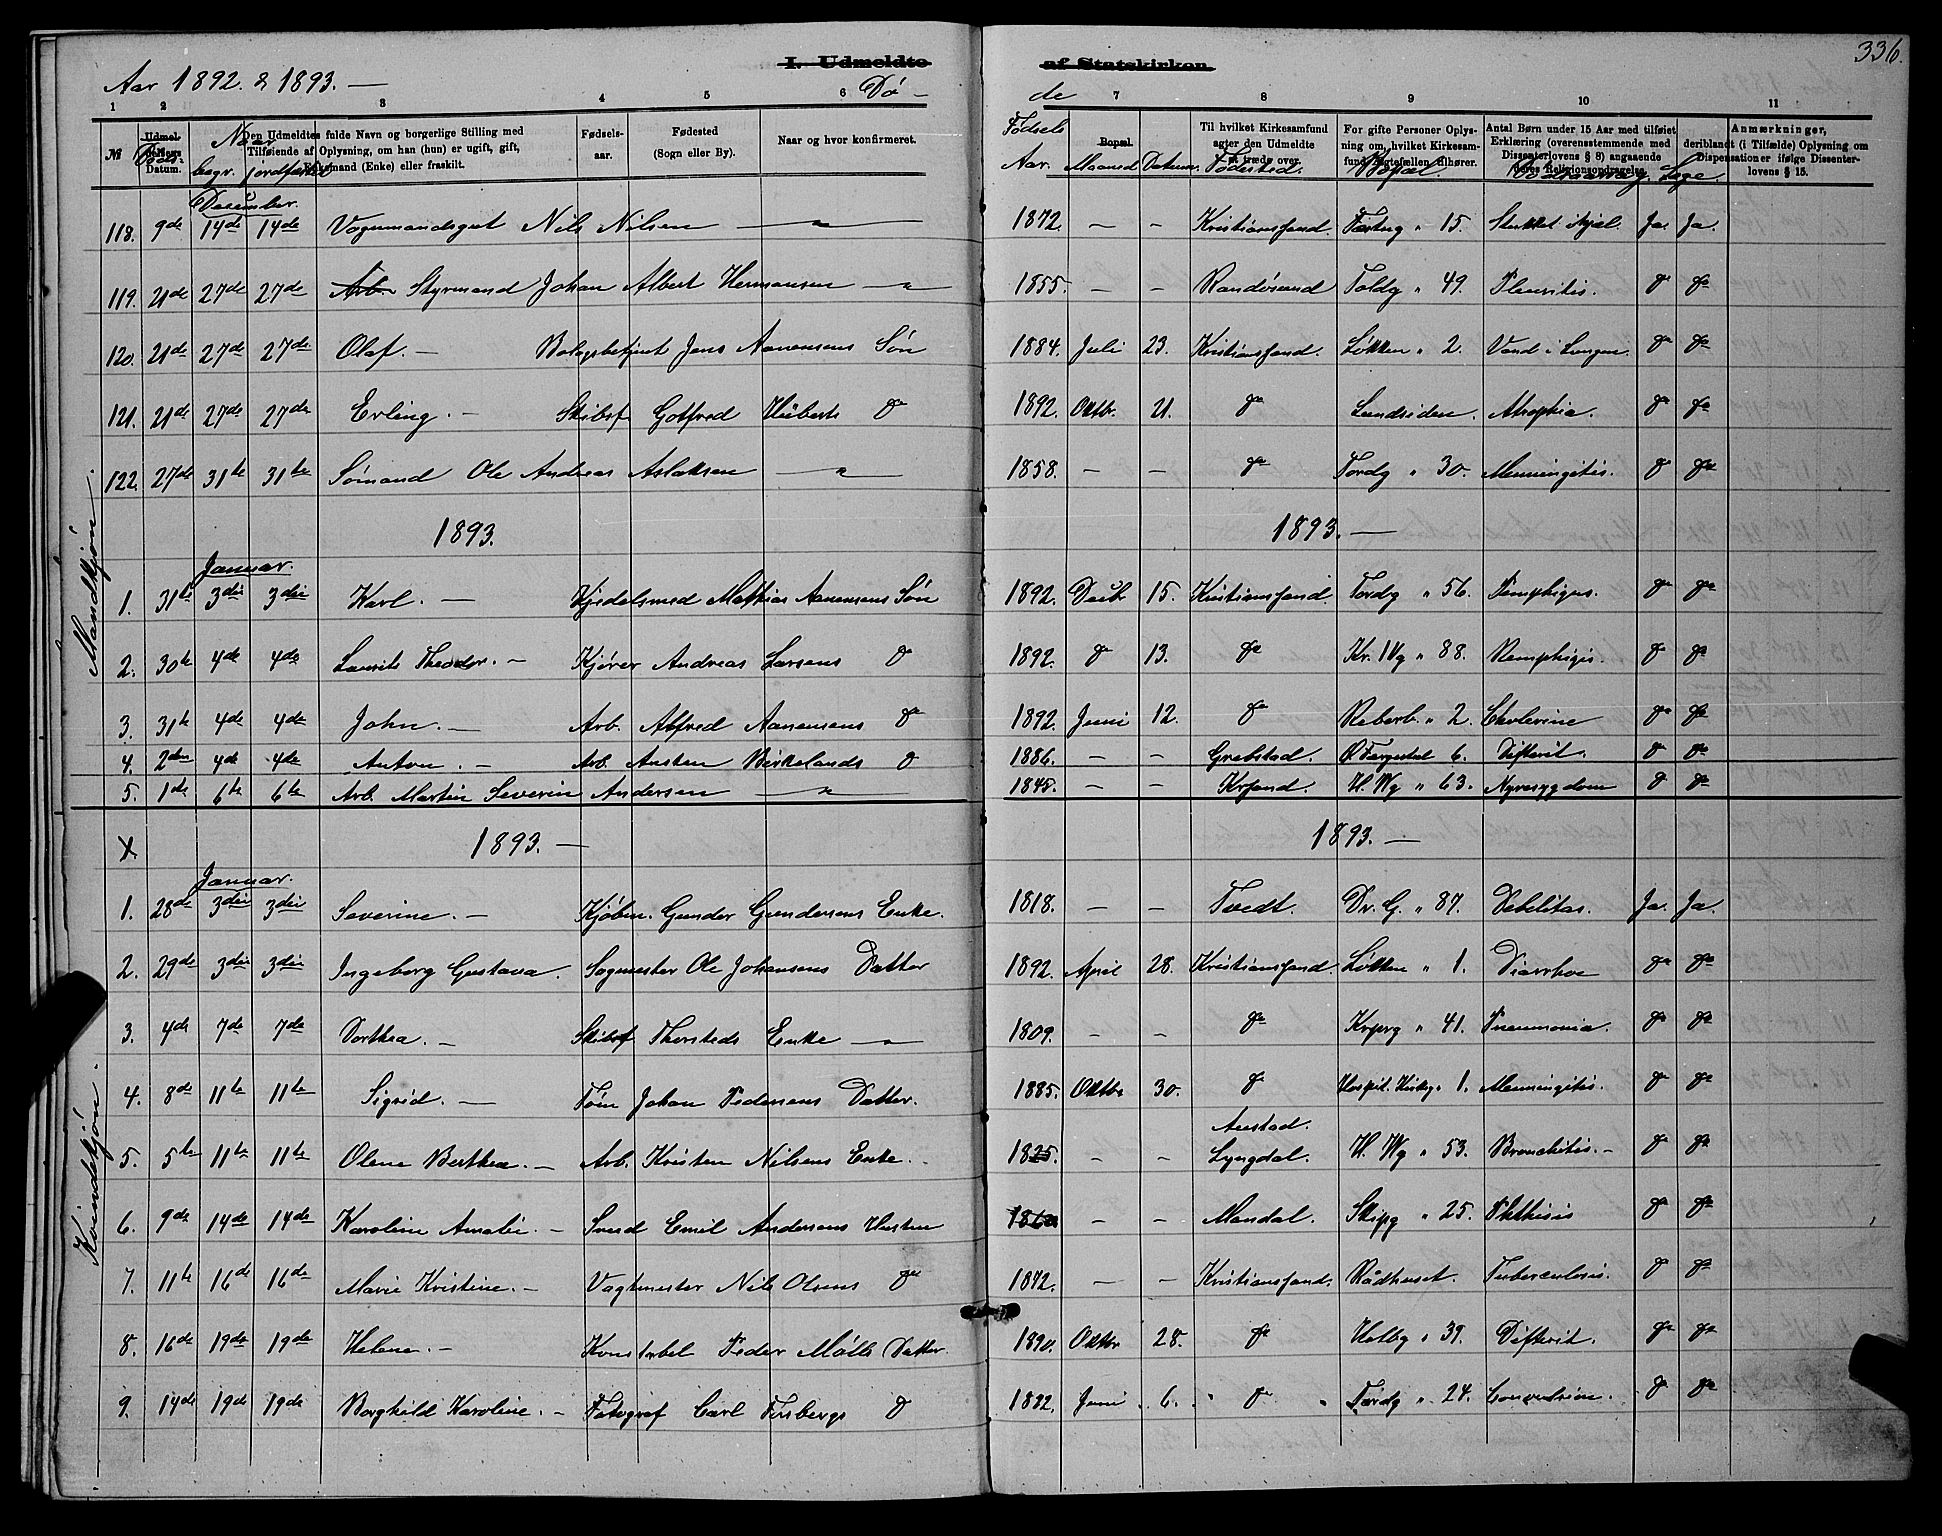 336.
I. Udmeldte af Statskirken
Aar 1892. & 1893. — Dø - de
1 2 3 4 5 6 7 8 9 10 11
No Udmeldelsens Datum. Den Udmeldtes fulde Navn og borgerlige Stilling med Tilføiende af Oplysning, om han (hun) er ugift, gift, Enkemand (Enke) eller fraskilt. Fødsels-aar. Fødested (Sogn eller By). Naar og hvor konfirmeret. Bopæl. Til hvilket Kirkesamfund agter den Udmeldte at træde over. For gifte Personer Oplysning om, hvilket Kirkesamfund Ægtefællen tilhører. Antal Børn under 15 Aar med tilføiet Erklæring (overensstemmende med Dissenterlovens § 8) angaaende deres Religionsopdragelse. Anmærkninger, deriblandt (i Tilfælde) Oplysning om Dispensationer ifølge Dissenterlovens § 15.
Naar begr. jordfæstet Fødsels Aar. Maaned Datum. Fødested. Bopæl. Dødsaarsag. Læge.
Mandkjøn.
December.
118. 9de 14de 14de Vognmandsgut Nils Nilsen — " — 1872. — - Kristiansand. Fæstng " 15. Stukket ihjel. Ja. Ja.
119. 21de 27de 27de Arb. Styrmand Johan Albert Hermansen — " — 1855. — - Randøsund Toldg " 49. Pleuritis. do do
120. 21de 27de 27de Olaf. — Bologsbetjent Jens Aanensens Søn 1884. Juli 23. Kristiansand. Løkken " 2. Vand i Lungen. do do
121. 21de 27de 27de Erling. — Skibsf Gotfred Hüberts do 1892. Oktbr. 21. do Lundsiden. Atrophia. do do
122. 27de 31te 31te Sømand Ole Andreas Aslaksen — " — 1858. — - do Tordg " 30. Menningitis. do do
1893. 1893. —
Januar.
1. 31te 3die 3die Karl. — Gjedelsmed Mathias Aanensens Søn 1892. Decbr 15. Kristiansand. Tordg " 56. Pemphigus. do do
2. 30te 4de 4de Laurits Theodor. — Kjører Andreas Larsens do 1892. do 13. do Kr. IVg " 88. Pemphigus. do do
3. 31te 4de 4de John. — Arb. Alfred Aanensens do 1892. Juni 12. do Reberb. " 2. Cholerine do do
4. 2den 4de 4de Anton. — Arb. Austen Birkelands do 1886. — - Grebstad. Ø. Færgested 6. Difterit. do do
5. 1ste 6te 6te Arb. Martin Severin Andersen — " — 1848. — - Krsand. H. Wg " 63. Nyresygdom do do
X 1893. — 1893. —
Kvindekjøn.
Januar.
1. 28de 3die 3die Severine. — Kjøbm. Gunder Gundersens Enke. 1818. — - Tvedt. Dr. G. " 87. Debilitas. Ja. Ja.
2. 29de 3die 3die Ingeborg Gustava. Sagmester Ole Johansens Datter 1892. April 28. Kristiansand. Løkken " 1. Diarrhoe do do
3. 4de 7de 7de Dorthea. — Skibsf Thorsteds Enke — " — 1809. - - do Krprg " 41. Pneumonia. do do
4. 8de 11te 11te Sigrid. — Tøm Johan Pedersens Datter. 1885. Oktbr 30. do Hospit. Kirkeg. 1. Menningitis. do do
5. 5te 11te 11te Olene Berthea. — Arb. Kristen Nilsens Enke. 1825. - - Austad. Lyngdal. H. Wg " 53. Bronchitis. — do do
6. 9de 14de 14de Karoline Amalie. — Smed Emil Andersens Hustru - - Mandal. Skipg " 25. Phthisis do do
7. 11te 16de 16de Marie Kristine. — Vagtmester Nils Olsens do 1872. - - Kristiansand. Rådhuset. Tuberculosis. do do
8. 16de 19de 19de Helene. — Konstabel Peder Mølls Datter. 1890. Oktbr 28. do Holbg " 39. Difterit. do do
9. 14de 19de 19de Borghild Karoline. — Fotograf Carl Finbergs do 1892. Juni 6. " do " Tordg " 24. Convulsion. do do